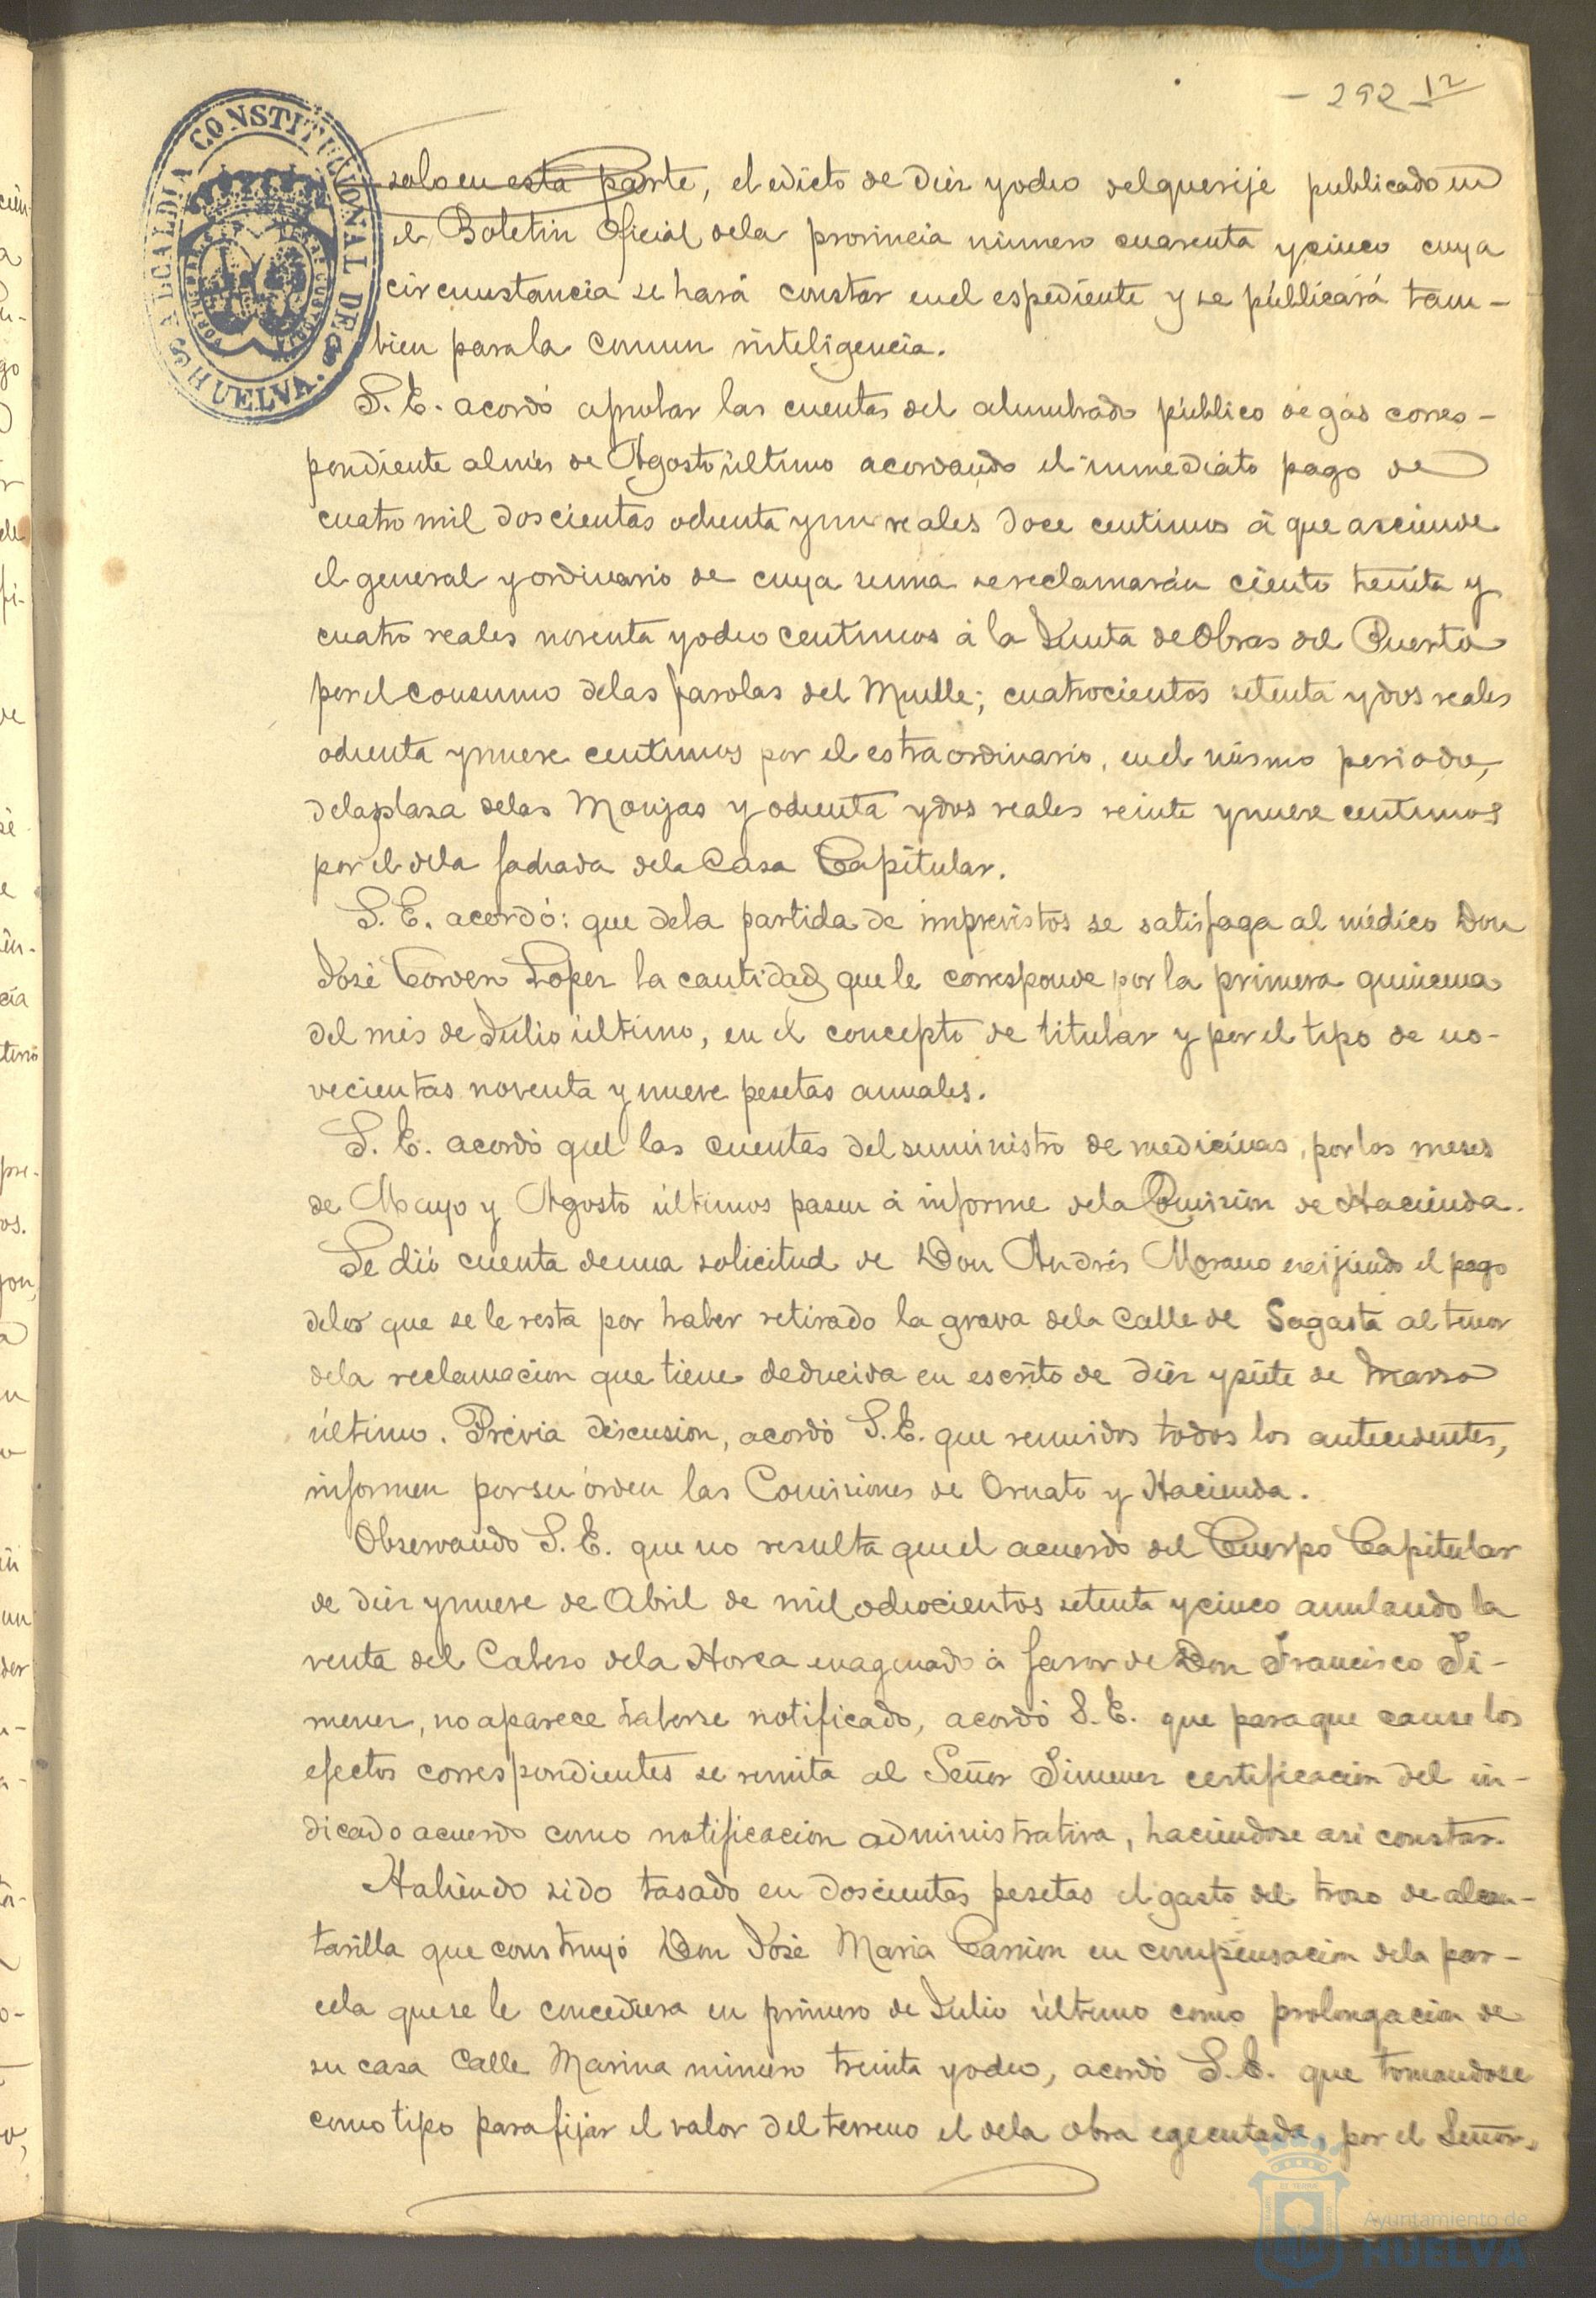 - 292 12
solo en esta parte, el edicto de diez y ocho del que rije publicado en
el Boletin Oficial de la provincia número cuarenta y cinco cuya
circunstancia se hará constar en el espediente y se públicará tam-
bien para la comun inteligencia.
S. E. acordó aprobar las cuentas del alumbrado público de gas corres-
pondiente al més de Agosto último acordando el inmediato pago de
cuatro mil doscientas ochenta y un reales doce centimos á que asciende
el general y ordinario de cuya suma se reclamarán ciento treinta y
cuatro reales noventa y ocho centimos á la Junta de Obras del Puerto
por el consumo de las farolas del Muelle; cuatrocientos setenta y dos reales
ochenta y nueve centimos por el estraordinario, en el mismo periodo,
de la plaza de las Monjas y ochenta y dos reales veinte y nueve centimos
por el de la fachada de la Casa Capitular.
S. E. acordó: que de la partida de imprevistos se satisfaga al médico Don
José Cordero Lopez la cantidad que le corresponde por la primera quincena
del més de Julio último, en el concepto de titular y por el tipo de no-
vecientas noventa y nueve pesetas anuales.
S. E. acordó que las cuentas del suministro de medicinas, por los meses
de Mayo y Agosto últimos pasen á informe de la Comision de Hacienda.
Se dió cuenta de una solicitud de Don Andrés Morano exijiendo el pago
de los que se le resta por haber retirado la grava de la Calle de Sagasta al tenor
de la reclamacion que tiene deducida en escrito de diez y siete de Marzo
último. Prévia discusion, acordó S. E. que reunidos todos los antecedentes,
informen por su órden las Comisiones de Ornato y Hacienda.
Observando S. E. que no resulta que el acuerdo del Cuerpo Capitular
de diez y nueve de Abril de mil ochocientos setenta y cinco anulando la
venta del Cabezo de la Horca enagenado á favor de Don Francisco Ji-
menez, no aparece haberse notificado, acordó S. E. que para que cause los
efectos correspondientes se remita al Señor Jimenez certificacion del in-
dicado acuerdo como notificacion administrativa, haciéndose asi constar.
Habiendo sido tasado en doscientas pesetas el gasto del trozo de alcan-
tarilla que construyó Don José Maria Carrion en compensacion de la par-
cela que se le concediera en primero de Julio último como prolongacion de
su casa Calle Marina número treinta y ocho, acordó S. E. que tomandose
como tipo para fijar el valor del terreno el de la obra egecutada, por el Señor
ALCALDIA CONSTITUCIONAL DE HUELVA.
Ayuntamiento de
HUELVA